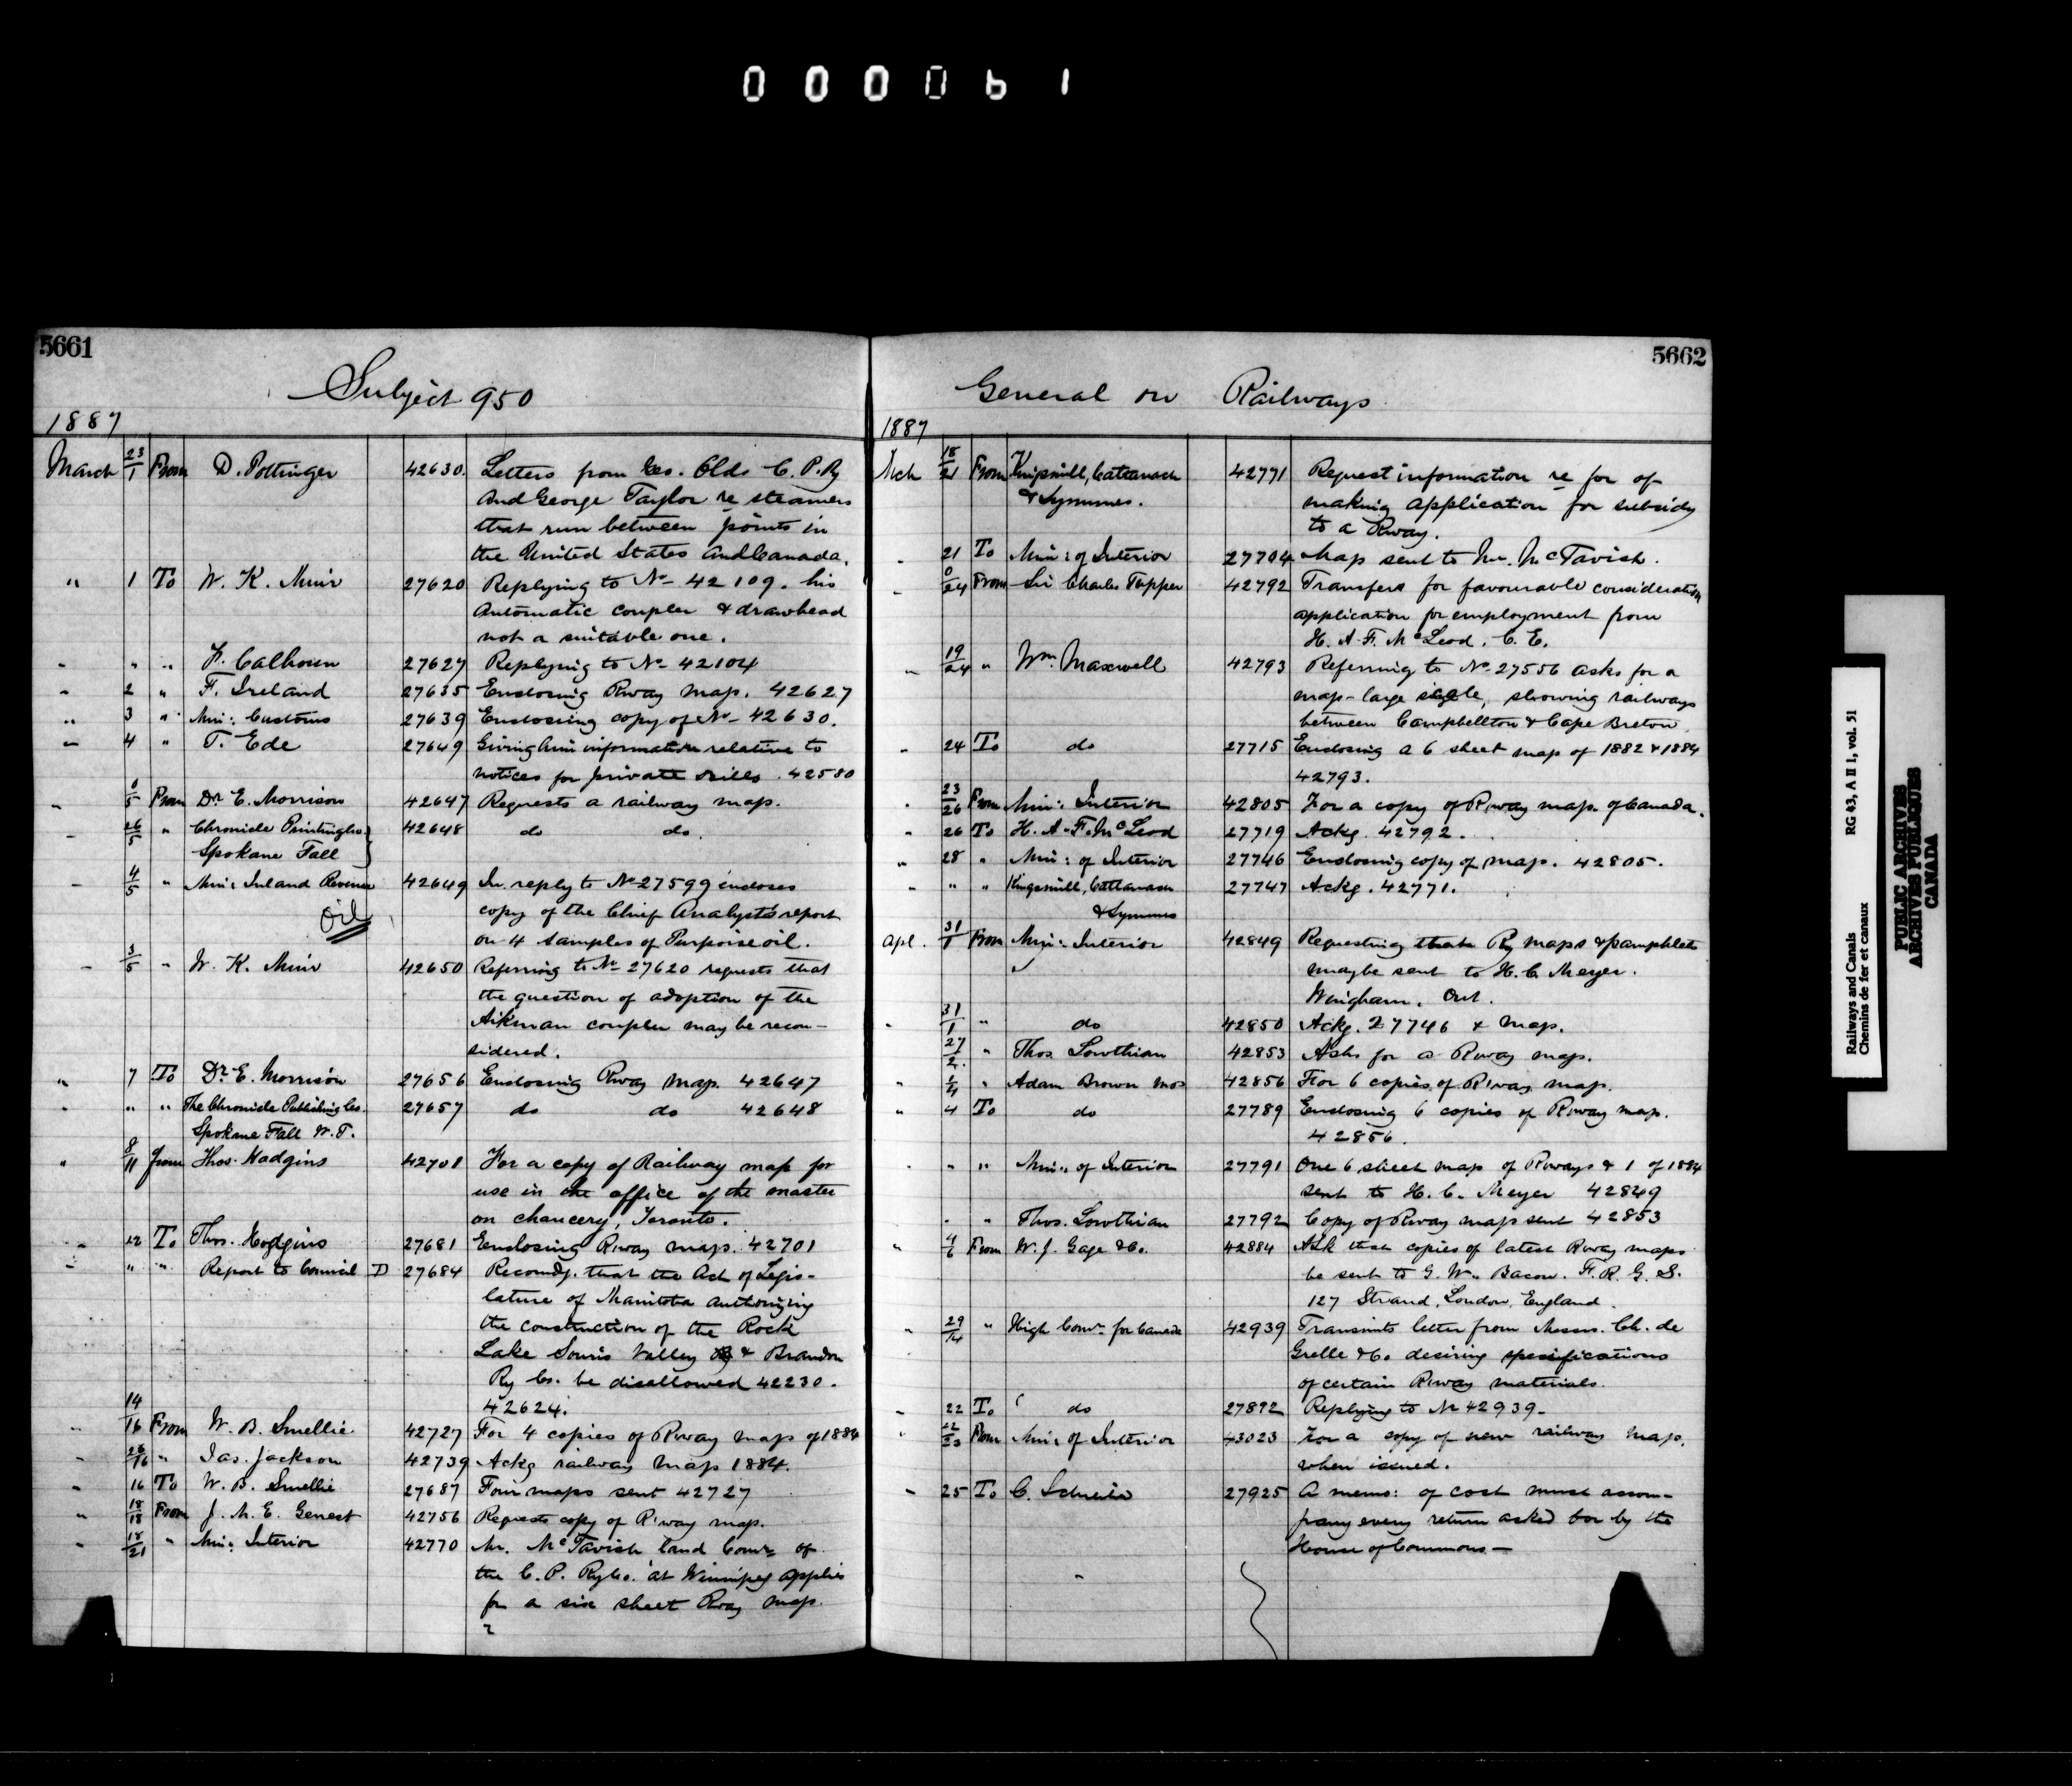 000061
5661
Subject 950
1887
March 23/1 From D. Pottinger 42630. Letters from Geo. Olds C. P. Ry
and George Taylor re steamers
that run between points in
the United States and Canada.
" 1 To W. K. Muir 27620 Replying to No 42109. his
Automatic coupler & drawhead
not a suitable one.
" " " F. Calhoun 27627 Replying to No 42104
" 2 " F. Ireland 27635 Enclosing Rway map. 42627
" 3 " Min: Customs 27639 Enclosing copy of No 42630.
" 4 " T. Ede 27649 Giving him information relative to
notices for private bills. 42580
" 0/5 From Dr E. Morrison 42647 Requests a railway map.
" 26/5 " Chronicle Printing Co. 42648 do do.
Spokane Fall
" 4/5 " Min: Inland Revenue 42649 In reply to No 27599 encloses
Oil copy of the Chief Analyst's report
on 4 samples of Purpoise oil.
" 3/5 " W. K. Muir 42650 Referring to No 27620 requests that
the question of adoption of the
Aikman coupler may be recon-
sidered.
" 7 To Dr E. Morrison 27656 Enclosing Rway map 42647
" " " The Chronicle Publishing Co. 27657 do do 42648
Spokane Fall W. T.
" 8/11 from Thos. Hodgins 42701 For a copy of Railway map for
use in the office of the master
on chancery, Toronto.
" 12 To Thos. Hodgins 27681 Enclosing Rway map. 42701
" " " Report to Council D 27684 Recomdg. that the Act of Legis-
lature of Manitoba authorizing
the construction of the Rock
Lake Souris Valley & Brandon
Ry Co. be disallowed 42230.
42624.
" 14/16 From W. B. Smellie 42727 For 4 copies of Rway map of 1884
" 26/16 " Jas. Jackson 42739 Ackg railway map 1884.
" 16 To W. B. Smellie 27687 Four maps sent 42727
" 18/18 From J. M. E. Genest 42756 Requests copy of R'way map.
" 18/21 " Min: Interior 42770 Mr. McTavish land Comr of
the C. P. Ry Co. at Winnipeg applies
for a six sheet Rway map.
5662
General on Railways
1887
Mch 18/21 From Kingsmill, Cattanach 42771 Request information re for of
& Symmes. making application for subsidy
to a Rway.
" 21 To Min: of Interior 27704 Map sent to Mr. McTavish.
" 0/24 From Sir Charles Tupper 42792 Transfers for favourable consideration
application for employment from
H. A. F. McLeod. C. E.
" 19/24 " Wm. Maxwell 42793 Referring to No 27556 asks for a
map - large scale, showing railways
between Campbellton & Cape Breton
" 24 To do 27715 Enclosing a 6 sheet map of 1882 & 1884
42793.
" 23/26 From Min: Interior 42805 For a copy of Rway map of Canada.
" 26 To H. A. F. McLeod 27719 Ackg. 42792.
" 28 " Min: of Interior 27746 Enclosing copy of map. 42805.
" " " Kingsmill, Cattanach 27747 Ackg. 42771.
& Symmes
Apl. 31/1 From Min: Interior 42849 Requesting that Ry maps & pamphlets
maybe sent to H. C. Meyer.
Wingham. Ont.
" 31/1 " do 42850 Ackg. 27746 & map.
27/2 " Thos Lowthian 42853 Asks for a Rway map.
" 1/4 " Adam Brown 42856 For 6 copies of R'way map.
" 4 To do 27789 Enclosing 6 copies of Rway map.
42856.
" " " Min: of Interior 27791 One 6 sheet map of Rways & 1 of 1884
sent to H. C. Meyer 42849
" " Thos. Lowthian 27792 Copy of Rway map sent 42853
" 4/6 From W. J. Gage & Co. 42884 Ask that copies of latest Rway maps
be sent to G. W. Bacon. F. R. G. S.
127 Strand, London, England.
" 29/14 " High Comr for Canada 42939 Transmits letter from Messrs. Ch. de
Grelle & Co. desiring specifications
of certain Rway materials.
" 22 To do 27892 Replying to No 42939.
" 22/23 From Min: of Interior 43023 For a copy of new railway map,
when issued.
" 25 To C. Schreiber 27925 A memo: of cost must accom-
pany every return asked for by the
House of Commons —
Railways and Canals RG 43, A II 1, vol. 51
Chemins de fer et canaux
PUBLIC ARCHIVES
ARCHIVES PUBLIQUES
CANADA